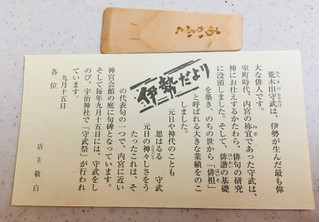 伊勢だより
荒木田守武は、伊勢が生んだ最も偉
大な俳人です。
室町時代、内宮の祢宜であった守武は、
神にお仕えするかたわら、俳句の研究
に没頭しました。そして、俳諧の基礎
を築き、のちの世から「俳祖」
と呼ばれる大きな業績をのこ
しました。
元日や神代のことも
思はるる　守武
元日の神々しさをう
たったこれは、そ
の代表句の一つで、内宮に近い
神宮会館の庭に句碑となっています。
そして毎年九月十五日には、守武をし
のび、宇治神社で「守武祭」が行われ
ています。
九月十五日
店主敬白
各位